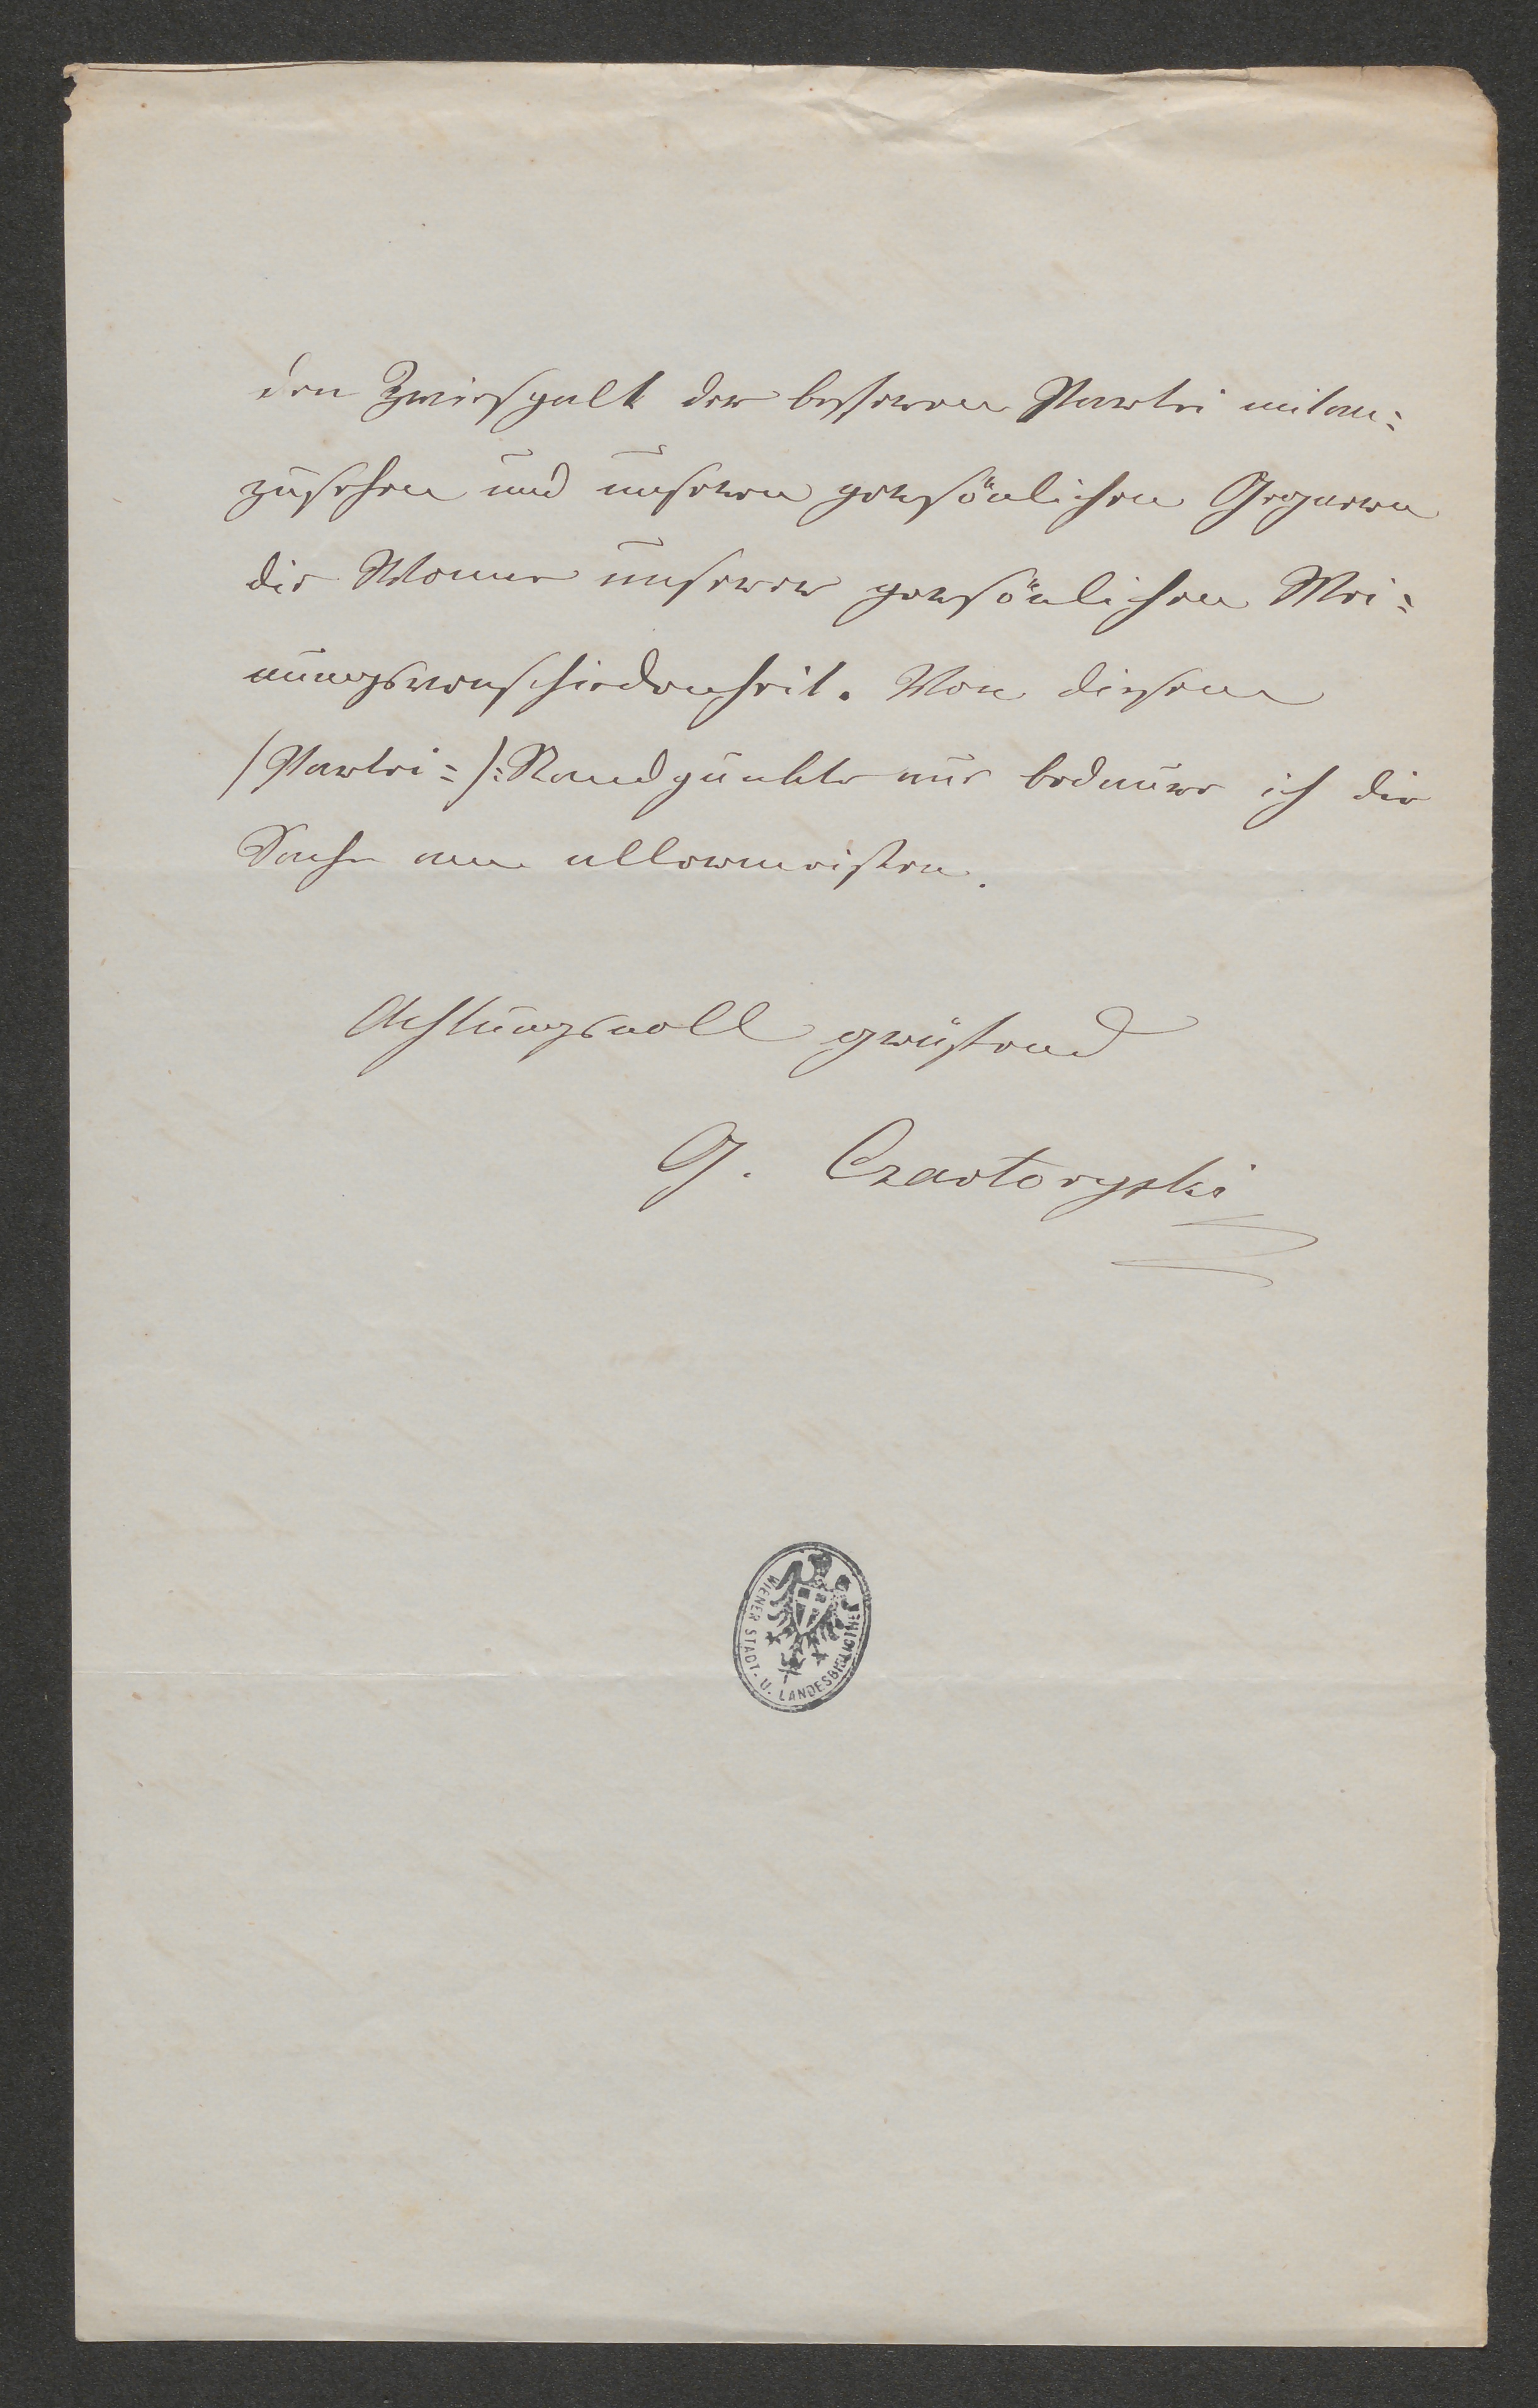 den Zwiespalt der besseren Partei mitan=
zusehen und unseren persönlichen Gegnern
die Wonne unserer persönlichen Mei=
nungsverschiedenheit. Von diesem
(Partei=):Standpunkte aus bedaure ich die
Sache am allermeisten.
Achtungsvoll grüßend
G. Czartoryski
WIENER STADT- U. LANDESBIBLIOTHEK